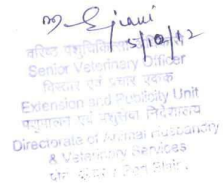 5/10/12
वरिष्ठ पशुचिकित्सा
Senior Veterinary Officer
विस्तार एवं प्रचार एकक
Extension and Publicity Unit
पशुपालन एवं पशुचिकित्सा निदेशालय
Directorate of Animal Husbandry
& Veterinary Services
Port Blair.